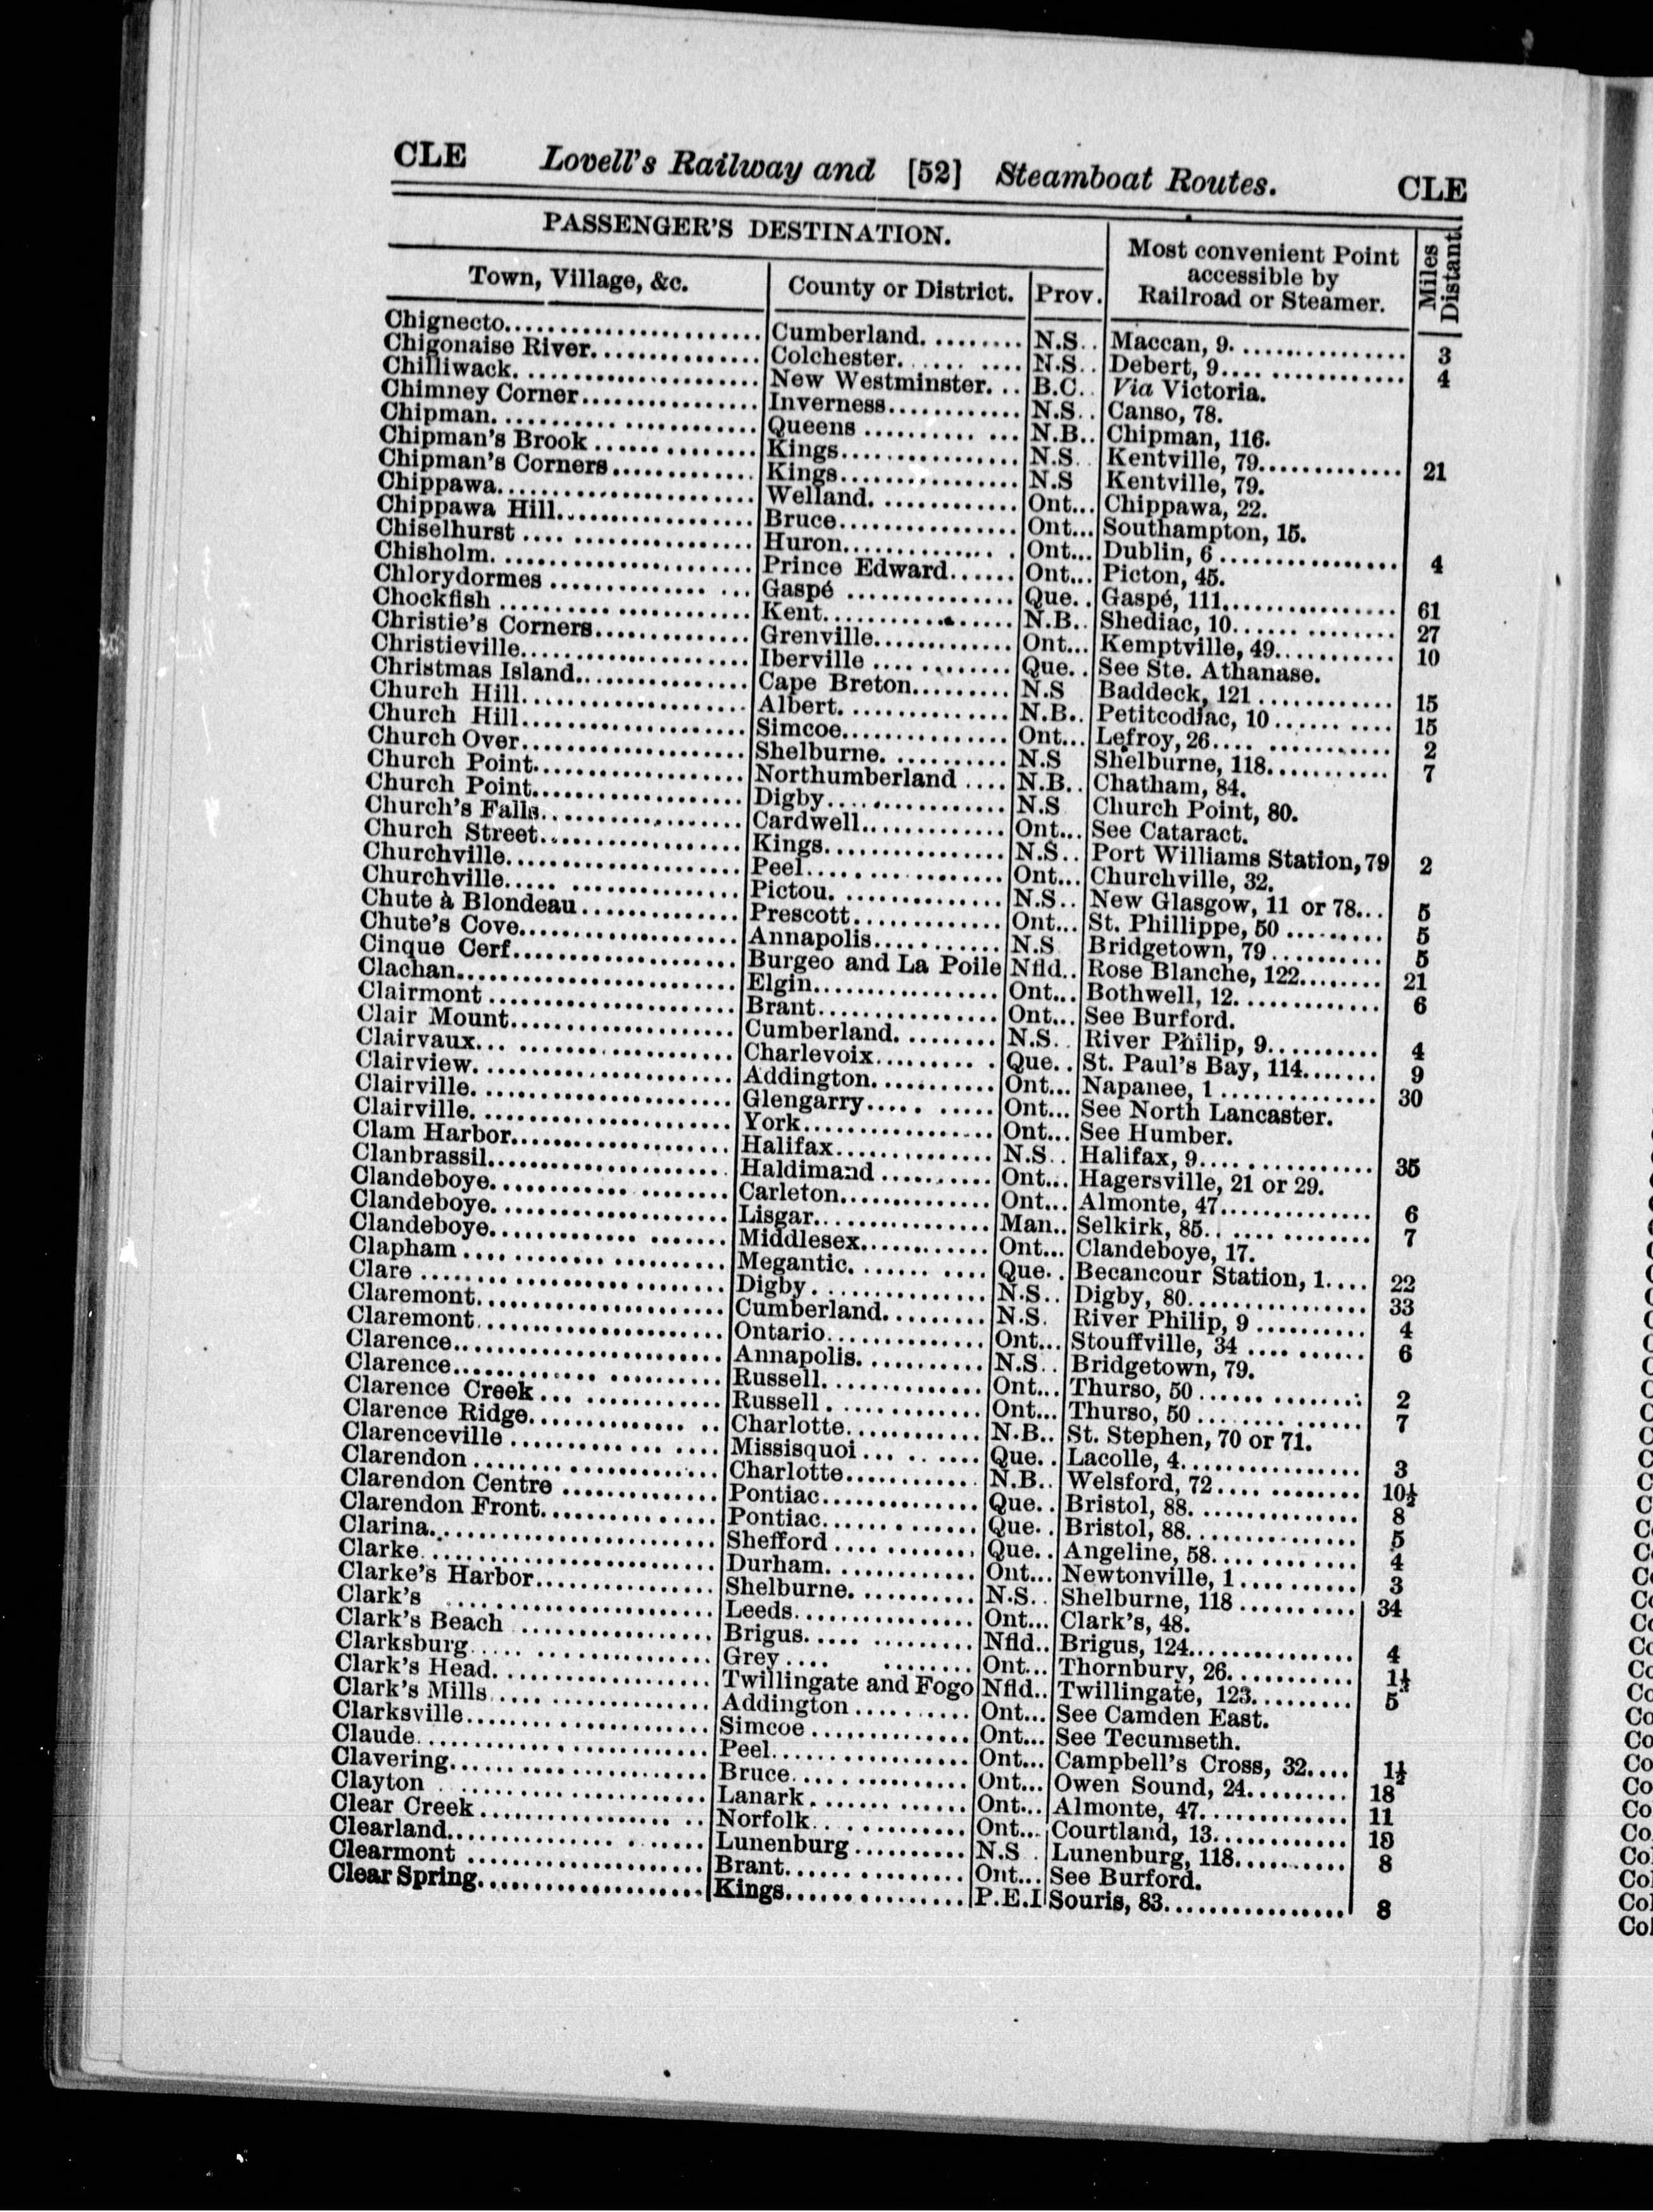 CLE Lovell's Railway and [52] Steamboat Routes. CLE
PASSENGER'S DESTINATION. Most convenient Point accessible by Railroad or Steamer. Miles Distant
Town, Village, &c. County or District. Prov.
Chignecto Cumberland N.S. Maccan, 9. 3
Chigonaise River Colchester N.S. Debert, 9 4
Chilliwack New Westminster B.C. Via Victoria.
Chimney Corner Inverness N.S. Canso, 78.
Chipman Queens N.B. Chipman, 116.
Chipman's Brook Kings N.S. Kentville, 79 21
Chipman's Corners Kings N.S Kentville, 79.
Chippawa Welland Ont. Chippawa, 22.
Chippawa Hill Bruce Ont. Southampton, 15.
Chiselhurst Huron Ont. Dublin, 6 4
Chisholm Prince Edward Ont. Picton, 45.
Chlorydormes Gaspé Que. Gaspé, 111 61
Chockfish Kent N.B. Shediac, 10 27
Christie's Corners Grenville Ont. Kemptville, 49 10
Christieville Iberville Que. See Ste. Athanase.
Christmas Island Cape Breton N.S Baddeck, 121 15
Church Hill Albert N.B. Petitcodiac, 10 15
Church Hill Simcoe Ont. Lefroy, 26 2
Church Over Shelburne N.S Shelburne, 118 7
Church Point Northumberland N.B. Chatham, 84.
Church Point Digby N.S Church Point, 80.
Church's Falls Cardwell Ont. See Cataract.
Church Street Kings N.S. Port Williams Station, 79 2
Churchville Peel Ont. Churchville, 32.
Churchville Pictou N.S. New Glasgow, 11 or 78 5
Chute à Blondeau Prescott Ont. St. Phillippe, 50 5
Chute's Cove Annapolis N.S Bridgetown, 79 5
Cinque Cerf Burgeo and La Poile Nfld. Rose Blanche, 122 21
Clachan Elgin Ont. Bothwell, 12 6
Clairmont Brant Ont. See Burford.
Clair Mount Cumberland N.S. River Philip, 9 4
Clairvaux Charlevoix Que. St. Paul's Bay, 114 9
Clairview Addington Ont. Napanee, 1 30
Clairville Glengarry Ont. See North Lancaster.
Clairville York Ont. See Humber.
Clam Harbor Halifax N.S. Halifax, 9 35
Clanbrassil Haldimand Ont. Hagersville, 21 or 29.
Clandeboye Carleton Ont. Almonte, 47 6
Clandeboye Lisgar Man. Selkirk, 85 7
Clandeboye Middlesex Ont. Clandeboye, 17.
Clapham Megantic Que. Becancour Station, 1 22
Clare Digby N.S. Digby, 80 33
Claremont Cumberland N.S. River Philip, 9 4
Claremont Ontario Ont. Stouffville, 34 6
Clarence Annapolis N.S. Bridgetown, 79.
Clarence Russell Ont. Thurso, 50 2
Clarence Creek Russell Ont. Thurso, 50 7
Clarence Ridge Charlotte N.B. St. Stephen, 70 or 71.
Clarenceville Missisquoi Que. Lacolle, 4 3
Clarendon Charlotte N.B. Welsford, 72 10½
Clarendon Centre Pontiac Que. Bristol, 88 8
Clarendon Front Pontiac Que. Bristol, 88 5
Clarina Shefford Que. Angeline, 58 4
Clarke Durham Ont. Newtonville, 1 3
Clarke's Harbor Shelburne N.S. Shelburne, 118 34
Clark's Leeds Ont. Clark's, 48.
Clark's Beach Brigus Nfld. Brigus, 124 4
Clarksburg Grey Ont. Thornbury, 26 1½
Clark's Head Twillingate and Fogo Nfld. Twillingate, 123 5
Clark's Mills Addington Ont. See Camden East.
Clarksville Simcoe Ont. See Tecumseth.
Claude Peel Ont. Campbell's Cross, 32 1½
Clavering Bruce Ont. Owen Sound, 24 18
Clayton Lanark Ont. Almonte, 47 11
Clear Creek Norfolk Ont. Courtland, 13
Clearland Lunenburg N.S Lunenburg, 118 8
Clearmont Brant Ont. See Burford.
Clear Spring Kings P.E.I Souris, 83 8